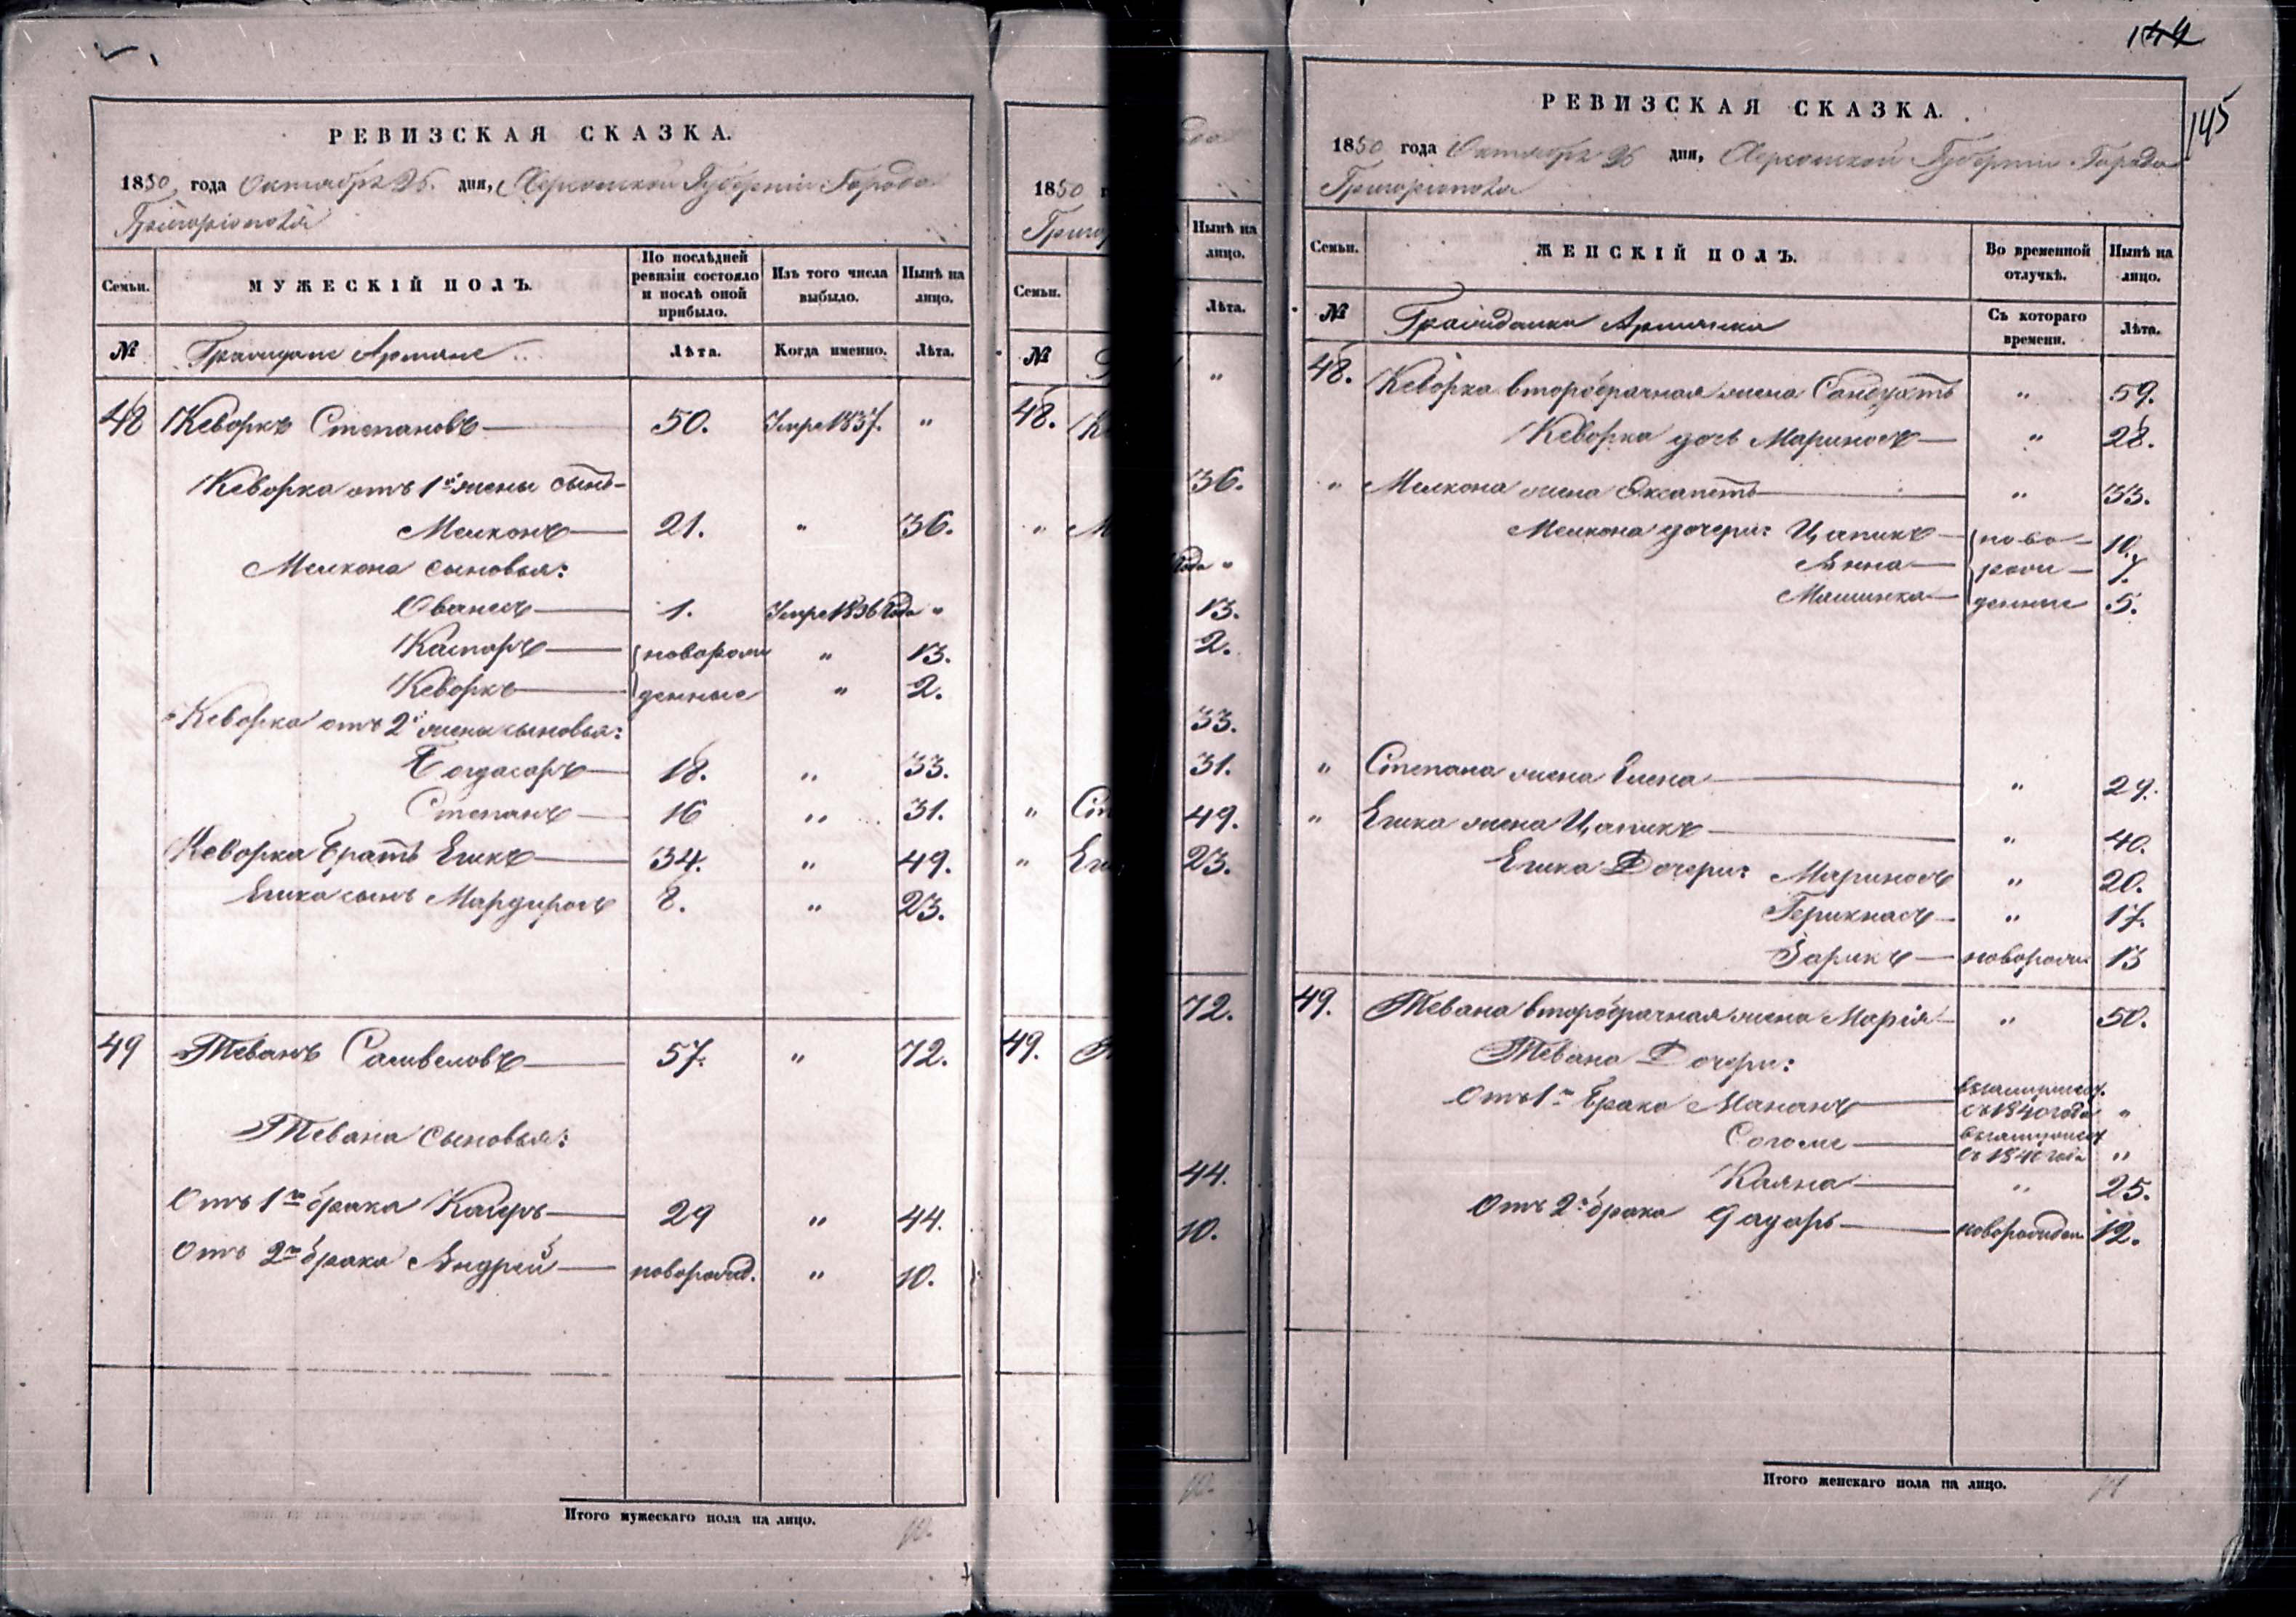 РЕВИЗСКАЯ СКАЗКА.
1850 года Октября 26. дня, Херсонской Губернiи Города
Григорiополя
Семьи.
МУЖЕСКIЙ ПОЛЪ.
По послѣдней ревизiи состояло и послѣ оной прибыло.
Изъ того числа выбыло.
Нынѣ на лицо.
№ Граждане Армяне Лѣта. Когда именно. Лѣта.
48 Кеворкъ Степановъ 50. Умре 1837. "
Кеворка отъ 1й жены сынъ
Мелконъ 21. " 36.
Мелкона сыновья:
Ованесъ 1. Умре 1836 года "
Каспаръ новорож " 13.
Кеворкъ денные " 2.
Кеворка отъ 2й жены сыновья:
Богдасаръ 18. " 33.
Степанъ 16 " 31.
Кеворка братъ Егикъ 34. " 49.
Егика сынъ Мардиросъ 8. " 23.
49 Теванъ Самвеловъ 57. " 72.
Тевана сыновья:
Отъ 1го брака 29 " 44.
Отъ 2го брака Андрей новорожд. " 10.
Итого мужескаго пола на лицо.
10.
1850
Григор
Семьи.
№
48.
"
"
"
49.
Нынѣ на лицо.
Лѣта.
"
36.
года "
13.
2.
33.
31.
49.
23.
72.
44.
10.
10.
144
145
РЕВИЗСКАЯ СКАЗКА.
1850 года Октября 26 дня, Херсонской Губернiи Города
Григорiополя
Семьи.
ЖЕНСКIЙ ПОЛЪ.
Во временной отлучкѣ.
Нынѣ на лицо.
№ Гражданки Армянки Съ котораго времени. Лѣта.
48. Кеворка второбрачная жена Сандухтъ " 59.
Кеворка дочь Мариносъ " 28.
" Мелкона жена Ехсапетъ " 33.
Мелкона дочери: Цапикъ ново- 10.
Анна рож- 7.
Машинка денные 5.
" Степана жена Елена " 29.
" Егика жена Цапикъ " 40.
Егика Дочери: Мариносъ " 20.
Терикнасъ " 17.
Зарикъ новорож 13
49. Тевана второбрачная жена Марiя " 50.
Тевана Дочери:
Отъ 1го брака Мананъ въ замужест.
съ 1840 года "
Согоме въ замужест
съ 1840 года "
Каяна " 25.
Отъ 2го брака Гадаръ новорожден 12.
Итого женскаго пола на лицо.
14